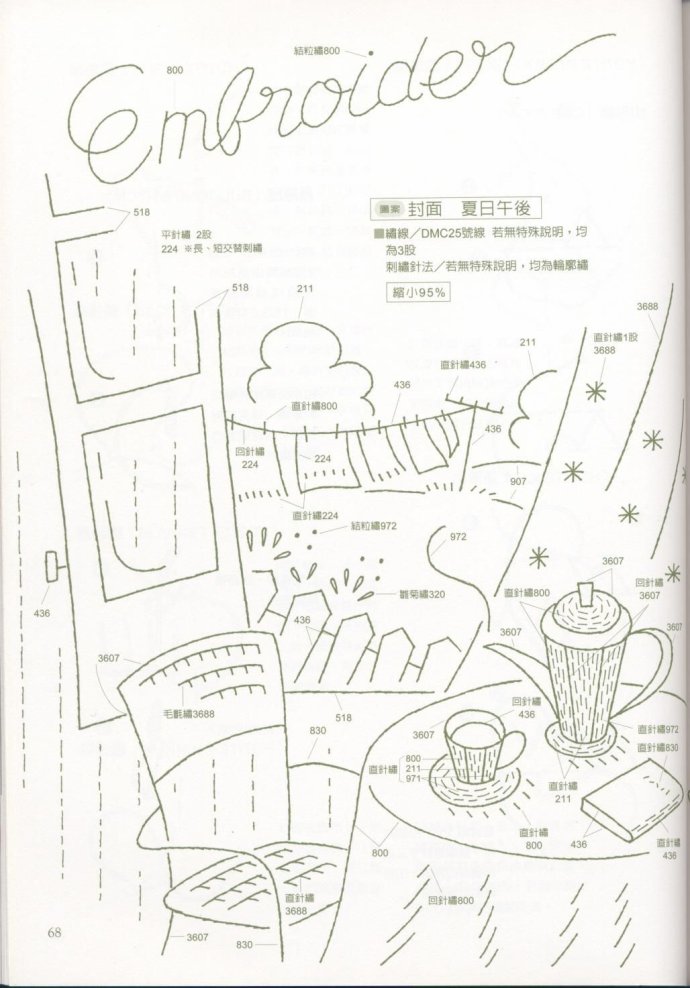 結粒繡800
800
Embroider
518
平針繡 2股
224 ※長、短交替刺繡
圖案 封面 夏日午後
■繡線／DMC25號線 若無特殊說明，均
為3股
刺繡針法／若無特殊說明，均為輪廓繡
縮小95%
518
211
3688
直針繡1股
3688
211
直針繡436
436
直針繡800
436
回針繡
224
224
907
直針繡224
結粒繡972
972
3607
回針繡
3607
直針繡800
雛菊繡320
436
436
3607
3607
3607
回針繡
436
毛氈繡3688
518
3607
830
直針繡972
直針繡830
直針繡
800
211
971
直針繡
211
直針繡
800
436
直針繡
436
800
直針繡
3688
回針繡800
68
3607
830